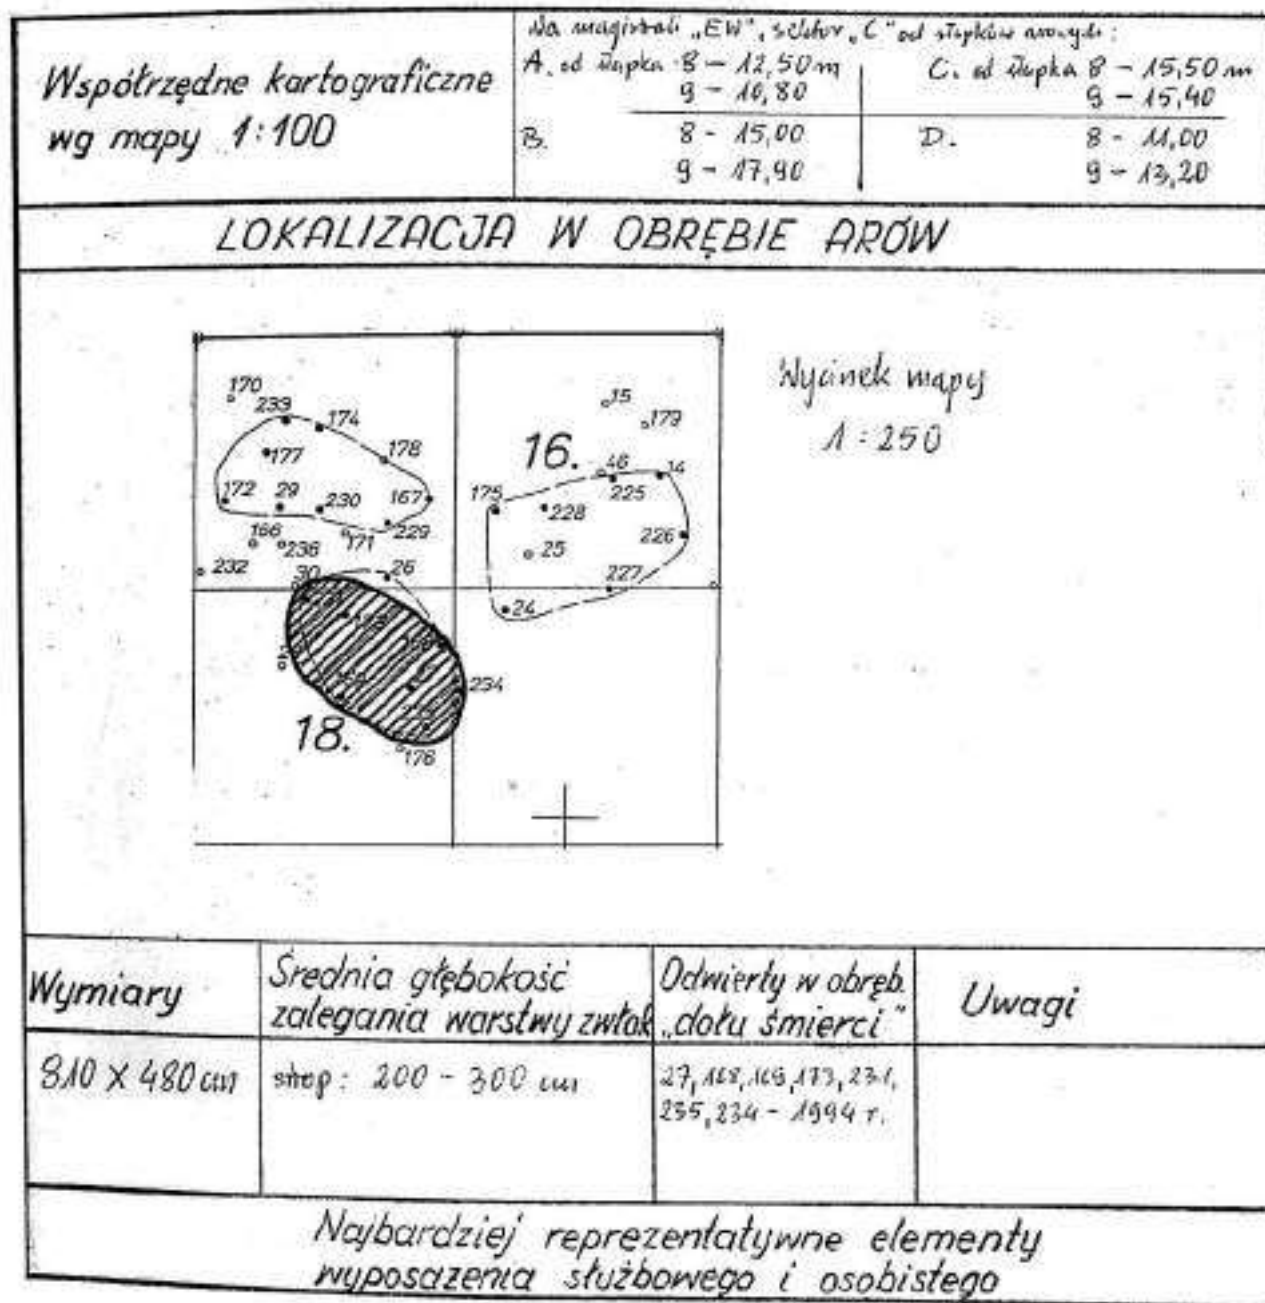 Współrzędne kartograficzne
wg mapy 1:100
Na magistrali „EW", sektor „C" od słupków arowych:
A. od słupka 8 - 12,50 m
9 - 10,80
B. 8 - 15,00
9 - 17,90
C. od słupka 8 - 15,50 m
9 - 15,40
D. 8 - 11,00
9 - 13,20
LOKALIZACJA W OBRĘBIE ARÓW
Wycinek mapy
1:250
170
233
174
177
178
172
29
230
167
229
166
236
171
232
30
26
15
179
16.
46
14
175
228
225
25
226
227
24
234
18.
176
Wymiary
Średnia głębokość
zalegania warstwy zwłok
Odwierty w obręb.
„dołu śmierci"
Uwagi
810 X 480 cm
strop: 200 - 300 cm
27, 168, 169, 173, 231,
235, 234 - 1994 r.
Najbardziej reprezentatywne elementy
wyposażenia służbowego i osobistego